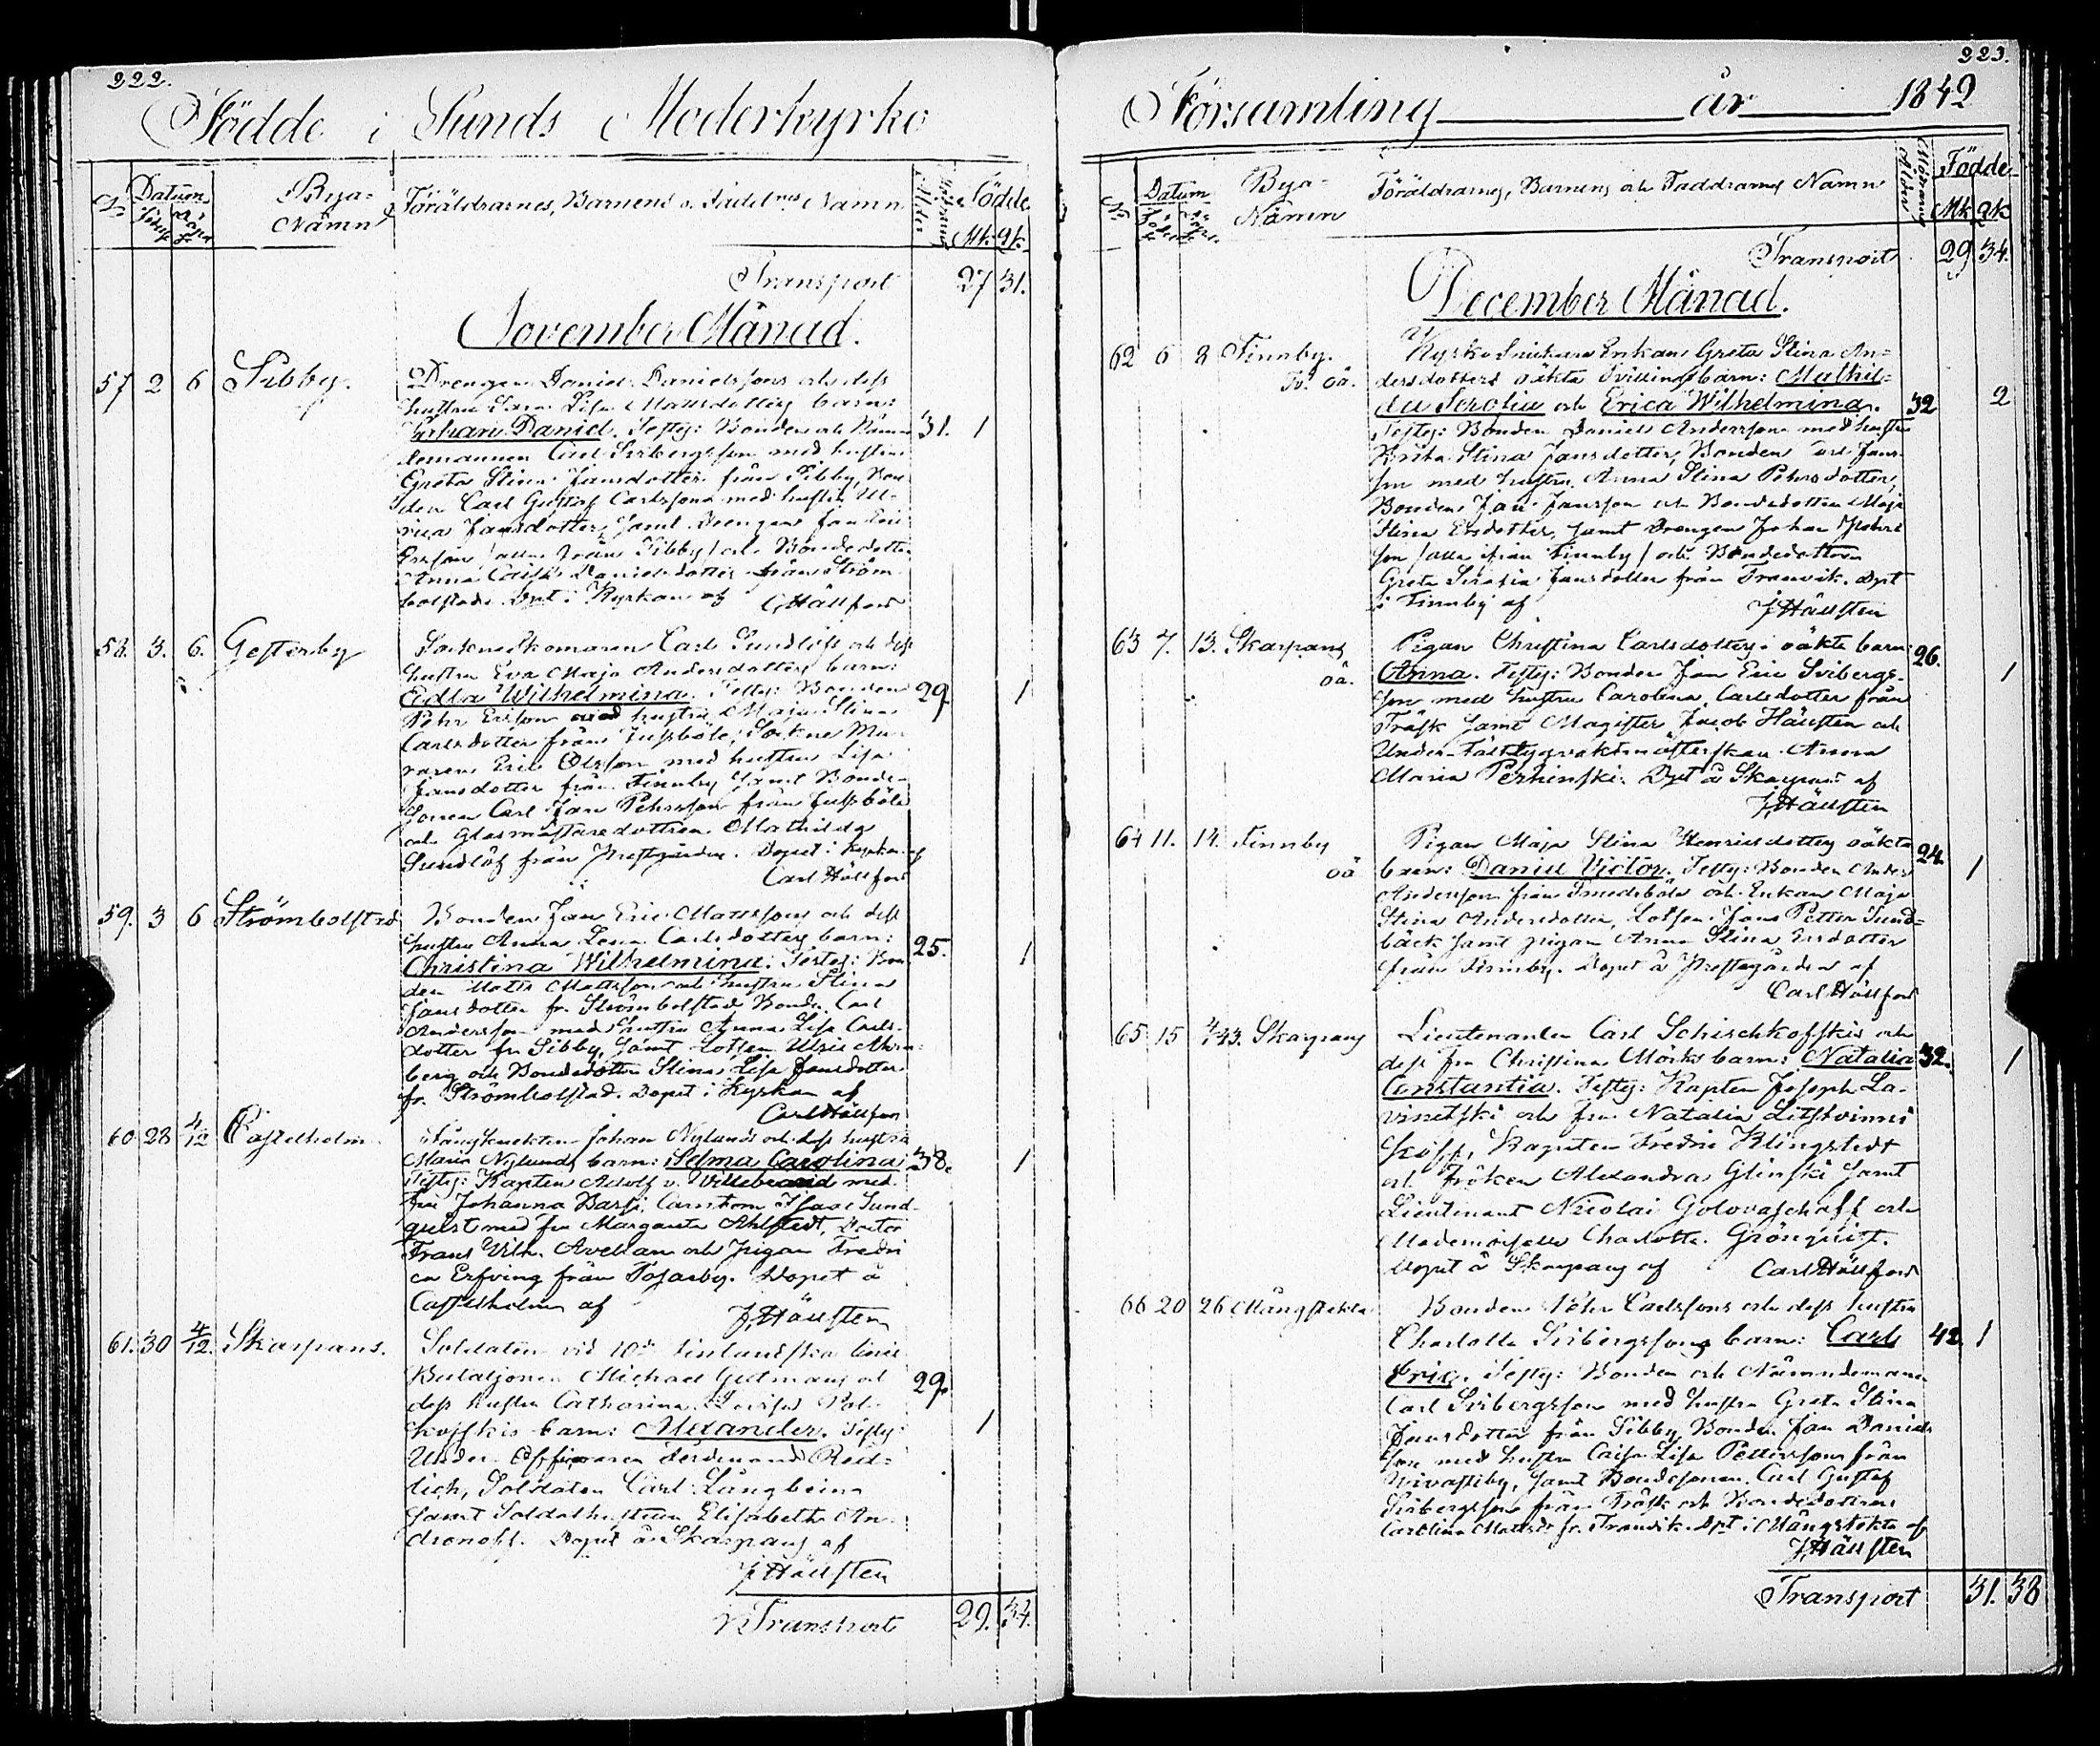 222.
Födde i Sunds Moderkyrko
No Datum Bya- Namn Föräldrarnes, Barnens o. Faddrnes Namn Moderns Ålder Födde
Mk. Qk.
Transport 27 31.
November Månad.
57 2 6 Sibby. Drengen Daniel Danielssons och dess
hustru Lisa Mattsdotters barn:
Johan Daniel. Testes: Bonden och Nämn- 31. 1
demannen Carl Sirbergsson med hustru
Greta Stina Jansdotter från Sibby, Bon-
den Carl Gustaf Carlssons med hustru Ul-
rica Jansdotter, samt Drengen Jan Eric
Ersson /alla från Sibby/ och Bondedottern
Anna Danielsdotter från Ström-
bolstad. Dpt i Kyrkan af C Hällfors
58. 3. 6. Gesterby Carl Sundlöfs och dess
hustru Eva Maja Andersdotters barn:
Edla Wilhelmina. Testes: Bonden 29. 1
Pehr Ersson med hustru Maja Stina
Carlsdotter från Jussböle, Sockne Mu-
raren Eric Olsson med hustru Lisa
Jansdotter från Finnby samt Bonde-
sonen Carl Jan Pehrsson från Jussböle
och Glasmästaredottren Mathilda
Sundlöf från Prestgården. Döpet i Kyrkan af
Carl Hällfors
59. 3 6 Strömbolstad Bonden Jan Eric Mattssons och dess
hustru Anna Lena Carlsdotters barn: 25. 1
Christina Wilhelmina. Testes: Bon-
den Matts Mattsson och hustru Stina
Jansdotter fr. Strömbolstad Bonden Carl
Andersson med hustru Anna Lisa Carls-
dotter fr Sibby, samt Lotsen Ulric
berg och Bondedottern Stina Lisa Jansdotter
fr. Strömbolstad. Döpet i Kyrkan af
Carl Hällfors
60 28 4/12 Castelholm Fångknekten Johan Nylunds och dess hustru
Maria Nylunds barn: Selma Carolina 38. 1
Testes: Kapten Adolf v. Villebrand med
fru Johanna Isaac Sund-
quist med fru Margareta Ahlstedt, Doctor
Frans Vilh. Avellan och Pigan Fredri
ca Erfving från Tosarby. Döpet å
Castelholm af J. Hällsten
61. 30 4/12. Skarpans. Soldaten vid 10de Finlandska linie
Bataljonen Michael Gutmans och 29.
dess hustru Catharina
barn: Alexander. Testes: 1
Under Officeraren Ferdinand Red-
lich, Soldaten Carl Långbein
samt Soldathustrun Elisabeth An-
dronoff. Döpet å Skarpans af
J. Hällsten
Transport 29. 34.
223.
Församling år 1842
No Datum Bya- Namn Föräldrarnes, Barnens och Faddrarnes Namn Mödrarnas Ålder Födde
Mk Qk
Transport 29 34.
December Månad.
62 6 8 Finnby. Kyrko Enkans Greta Stina An-
Tv. oä. dersdotters oäkta Tvillingsbarn: Mathil-
da Serafia och Erica Wilhelmina. 32 2
Testes: Bonden Daniel Andersson med hustru
Brita Stina Jansdotter, Bonden Jans-
son med hustru Anna Stina Pehrsdotter,
Bonden Jan Jansson och Bondedottern Maja
Stina Ersdotter, samt Drengen Johan Pehrs-
son /alla ifrån Finnby/ och Bondedottren
Greta Serafia Jansdotter från Tranvik. Dpt
i Finnby af J. Hällsten
63 7. 13. Skarpans Pigan Christina Carlsdotters oäkta barn: 26.
oä. Anna. Testes: Bonden Jan Eric Sirbergs- 1
son med hustru Carolina Carlsdotter från
Träsk samt Magister Jacob Hällsten och
Under-Fälttygvaktmästerskan Anna
Maria Perhinski. Dpt å Skarpans af
J. Hällsten
64 11. 14. Finnby Pigan Maja Stina Henricsdotters oäkta 24.
oä barn: Daniel Victor. Testes: Bonden Anders 1
Andersson från Smedsböle och Enkan Maja
Stina Andersdotter, Lotsen Jans Petter Sund-
bäck samt pigan Anna Stina Ersdotter
från Finnby. Döpet å Prestgården af
Carl Hällfors
65 15 4/43. Skarpans Lieutenanten Carl Schischkoffskis och
dess fru Christina Mörks barn: Natalia 32. 1
Constantia. Testes: Kapten Joseph La-
vinetski och fru Natalia Litstvinni
koff, Kapten Fredric Klingstedt
och Fröken Alexandra Glinski samt
Lieutenant Nicolai Golovaschoff och
Mademoiselle Charlotta Grönquist.
Döpet å Skarpans af Carl Hällfors
66 20 26 Mångstekta Bonden Pehr Carlssons och dess hustru
Charlotta Sirbergssons barn: Carl 42. 1
Eric. Testes: Bonden och Nämndeman
Carl Sirbergsson med hustru Greta Stina
Jansdotter från Sibby, Bonden Jan Daniels-
son med hustru Caisa Lisa Pettersson från
Hivasteby, samt Bondesonen Carl Gustaf
Sirbergsson från Träsk och Bondedottren
Carolina Mattsdr fr. Tranvik. Dpt i Mångstekta af
J. Hällsten
Transport 31. 38